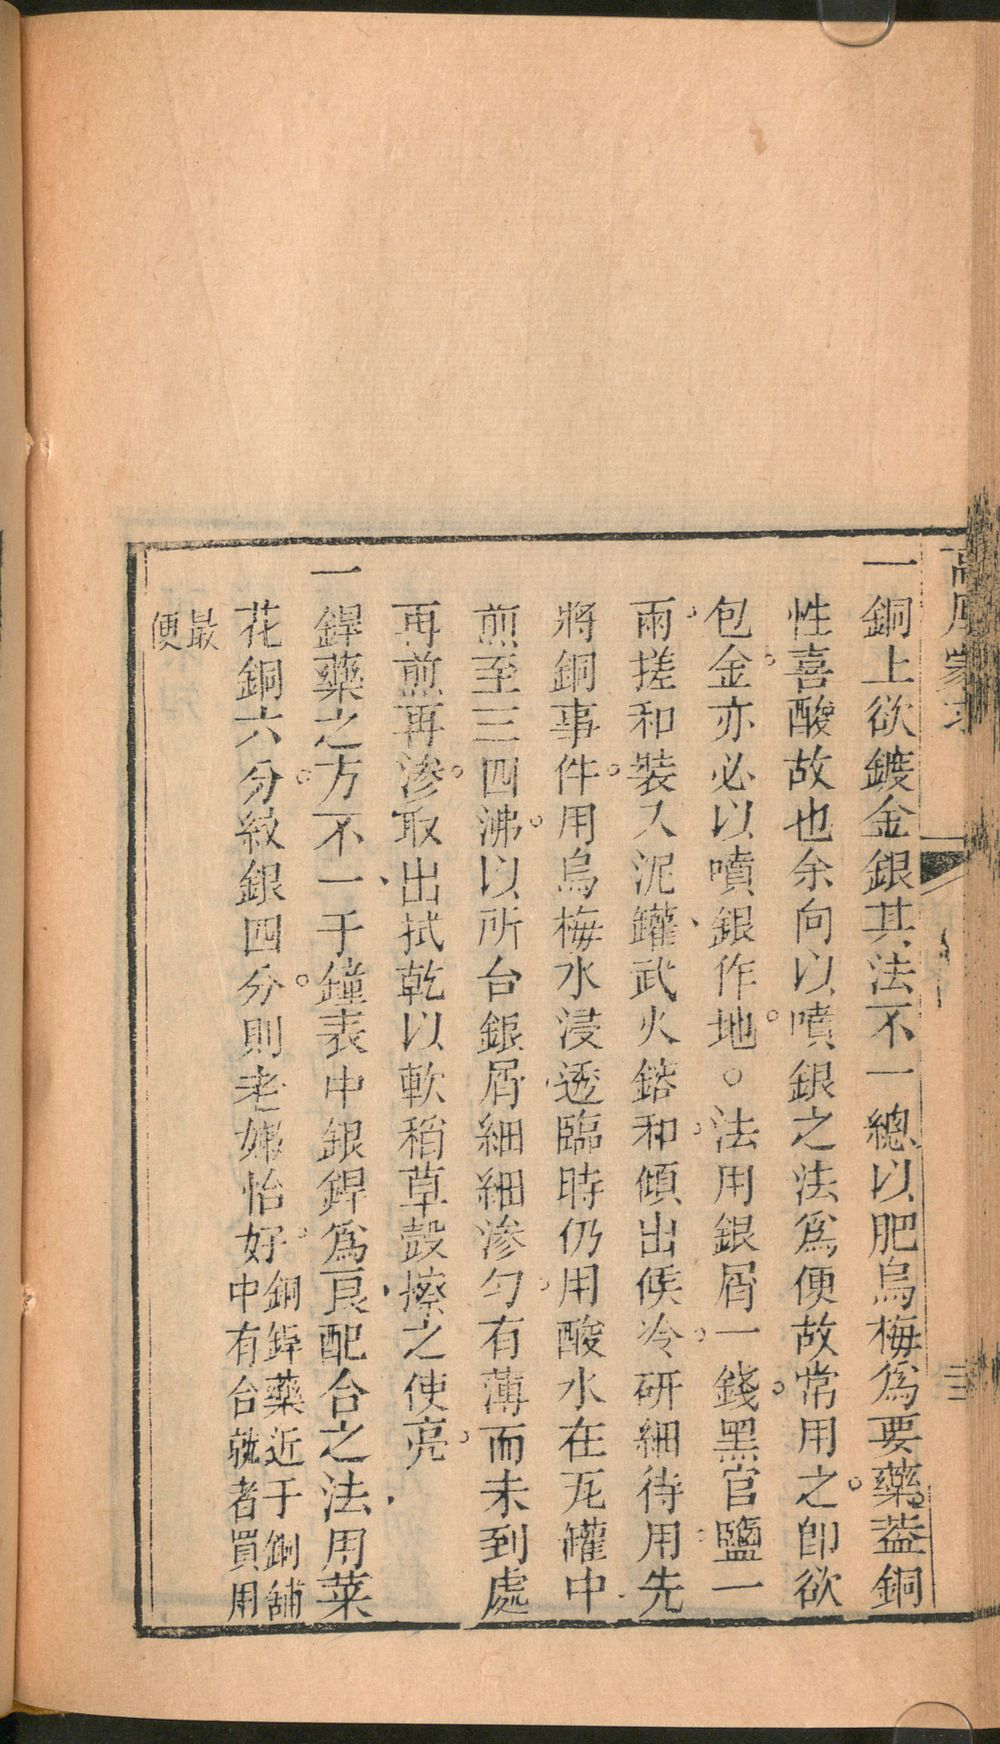 高厚蒙求
三
一銅上欲鍍金銀其法不一總以肥烏梅爲要藥。葢銅
性喜酸故也余向以噴銀之法爲便故常用之。卽欲
包金。亦必以噴銀作地。○法用銀屑一錢。黑官鹽一
兩。搓和裝入泥罐、武火鎔和、傾出候冷、研細待用先
將銅事件。用烏梅水浸透、臨時仍用酸水在瓦罐中
煎至三四沸。以所台銀屑細細滲勻、有薄而未到處
再煎再滲。取出拭乾以軟稻草殼擦之使亮。
一銲藥之方不一、于鐘表中銀銲爲良、配合之法、用菜
花銅六分。紋銀四分。則老嫩恰好。銅銲藥近于銅舖
中有台就者買用
最
便